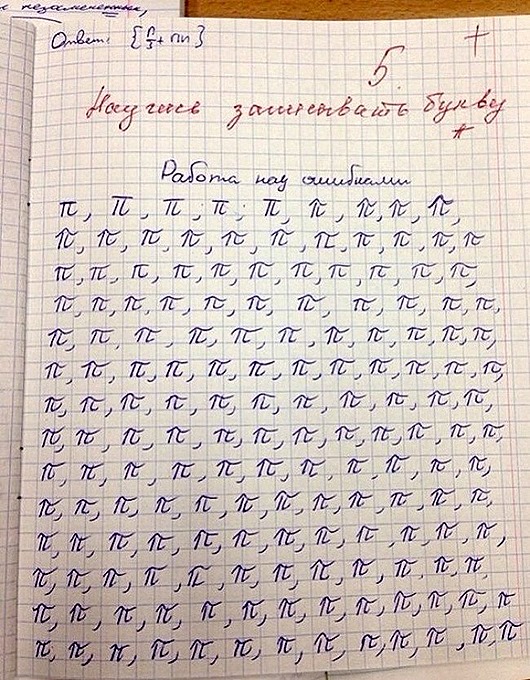 Ответ: {π/3 + πn}
5 +
Научись записывать букву
π
Работа над ошибками
π, π, π, π, π, π, π, π, π,
π, π, π, π, π, π, π, π, π, π, π
π, π, π, π, π, π, π, π, π, π, π,
π, π, π, π, π, π, π, π, π, π, π,
π, π, π, π, π, π, π, π, π, π, π,
π, π, π, π, π, π, π, π, π, π, π, π,
π, π, π, π, π, π, π, π, π, π, π,
π, π, π, π, π, π, π, π, π, π, π, π,
π, π, π, π, π, π, π, π, π, π, π,
π, π, π, π, π, π, π, π, π, π, π, π,
π, π, π, π, π, π, π, π, π, π, π, π,
π, π, π, π, π, π, π, π, π, π, π, π,
π, π, π, π, π, π, π, π, π, π, π, π, π
π, π, π, π, π, π, π, π, π, π, π, π, π